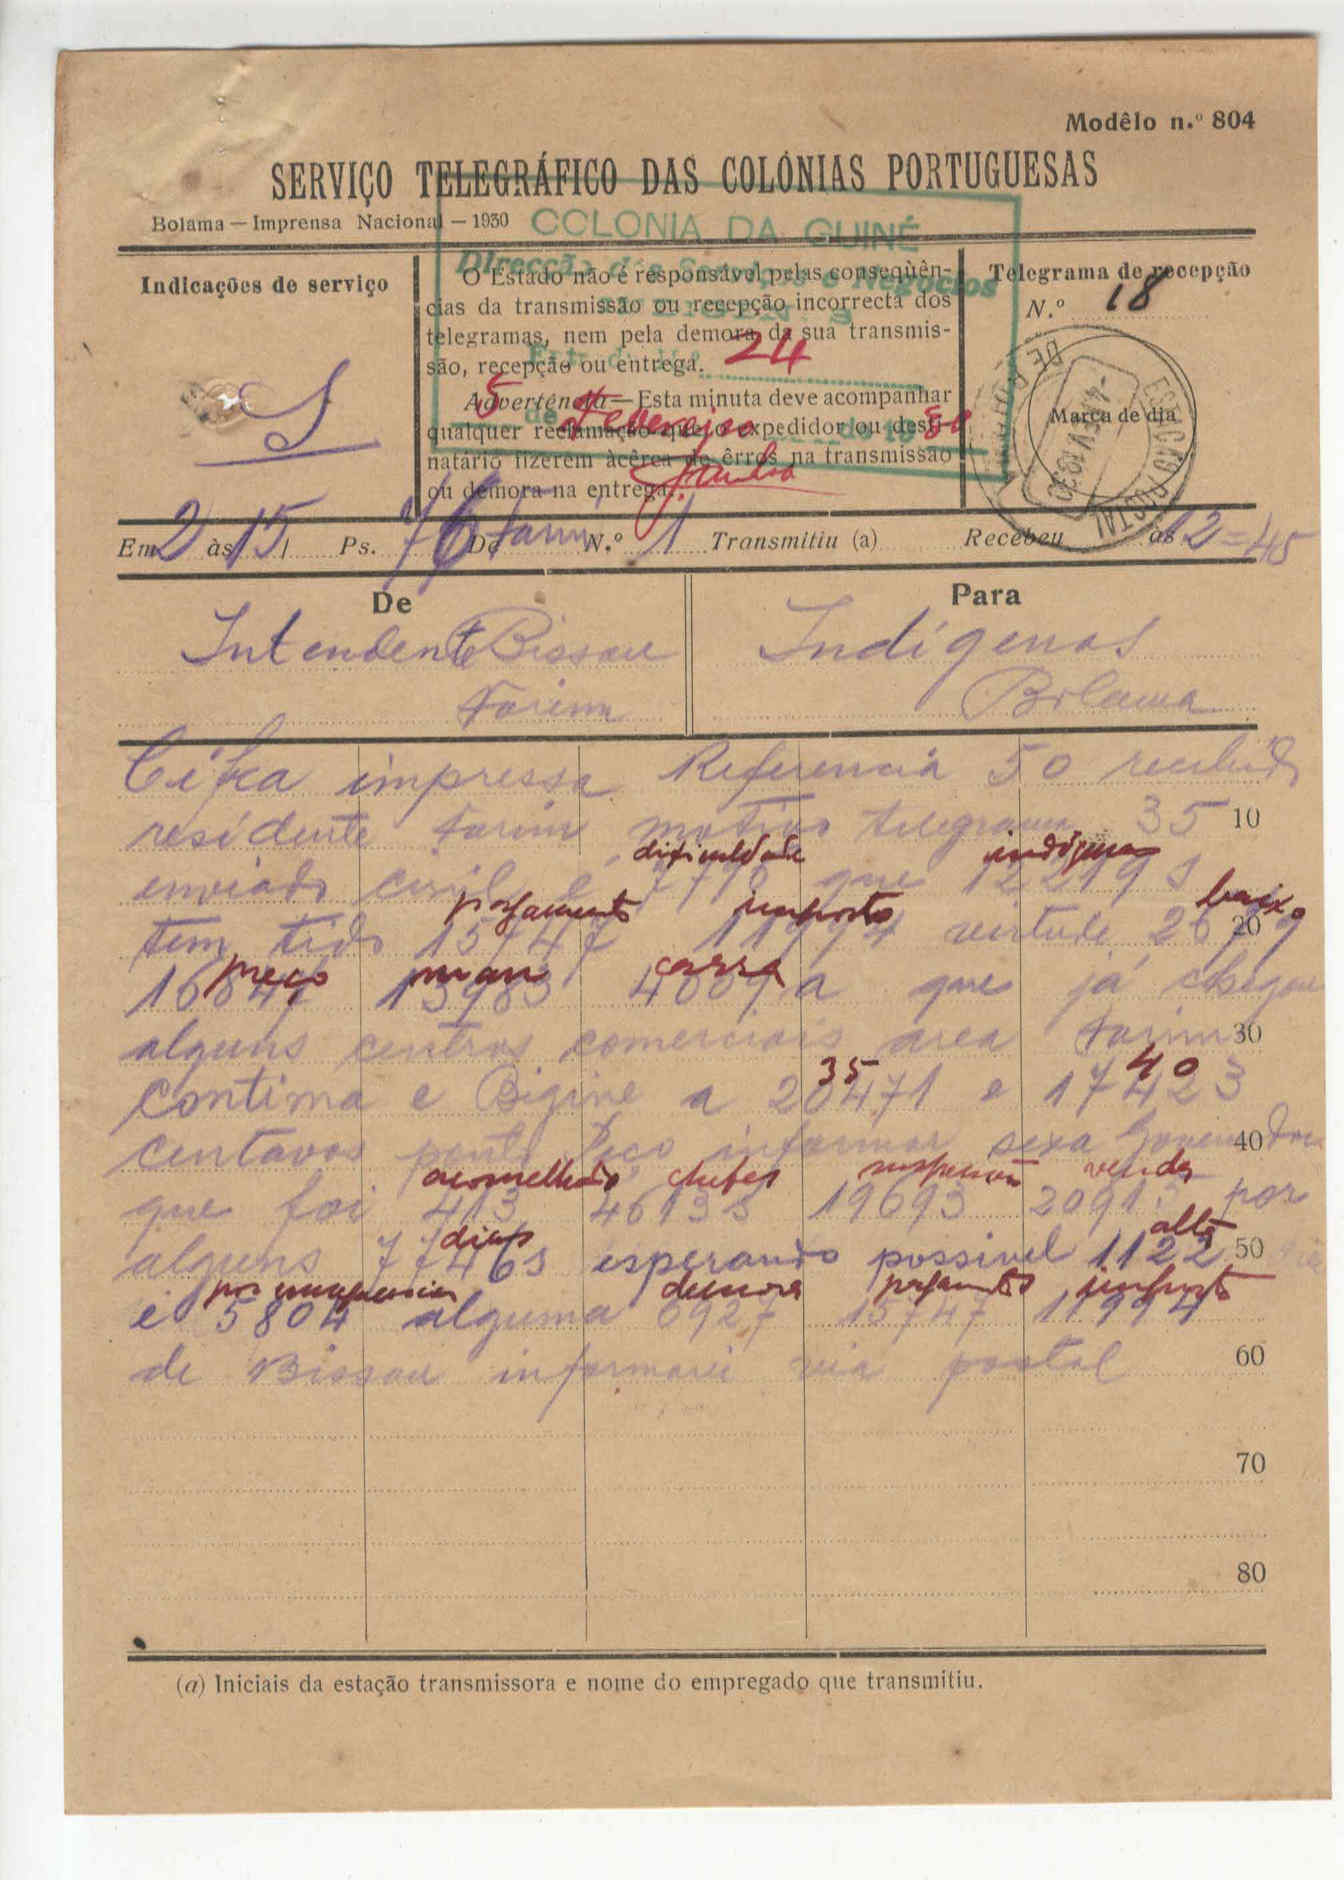 Modêlo n.º 804
SERVIÇO TELEGRÁFICO DAS COLÓNIAS PORTUGUESAS
Bolama — Imprensa Nacional — 1930
COLONIA DA GUINÉ
Direcção dos Serviços e Negocios
Indicações de serviço
S
O Estado não é responsável pelas conseqüên-
cias da transmissão ou recepção incorrecta dos
telegramas, nem pela demora da sua transmis-
são, recepção ou entrega.
24
Advertência — Esta minuta deve acompanhar
qualquer reclamação que o expedidor ou desti-
natário fizerem àcêrca de êrros na transmissão
ou demora na entrega.
5 de Fevereiro de 19
Telegrama de recepção
N.º 18
Marca de dia
ESTAÇÃO POSTAL
Em 2 às 15 Ps. 76 De Farim N.º 1 Transmitiu (a) Recebeu às 12=45
De
Intendente Bissau
Farim
Para
Indígenas
Bolama
Cifra impressa Referencia 50 recebido
residente Farim motivo telegrama 35 10
dificuldade indígenas
enviado que 12219 s
pagamento imposto baixo
tem tido 15747 11994 virtude 2679 20
preço mancarra
16847 13983 4009 a que já chegou
alguns centros comerciais area Farim 30
35 40
Contima e Bigine a 20471 e 17423
centavos ponto Peço informar sexa Governador 40
aconselhado chefes suspensão vendas
que foi 413 46135 19693 2091 por
dias alta
alguns 77463 esperando possivel 1122 50
demora pagamento imposto
e 5804 alguma 6927 15747 11994
de Bissau informarei via postal 60
70
80
(a) Iniciais da estação transmissora e nome do empregado que transmitiu.